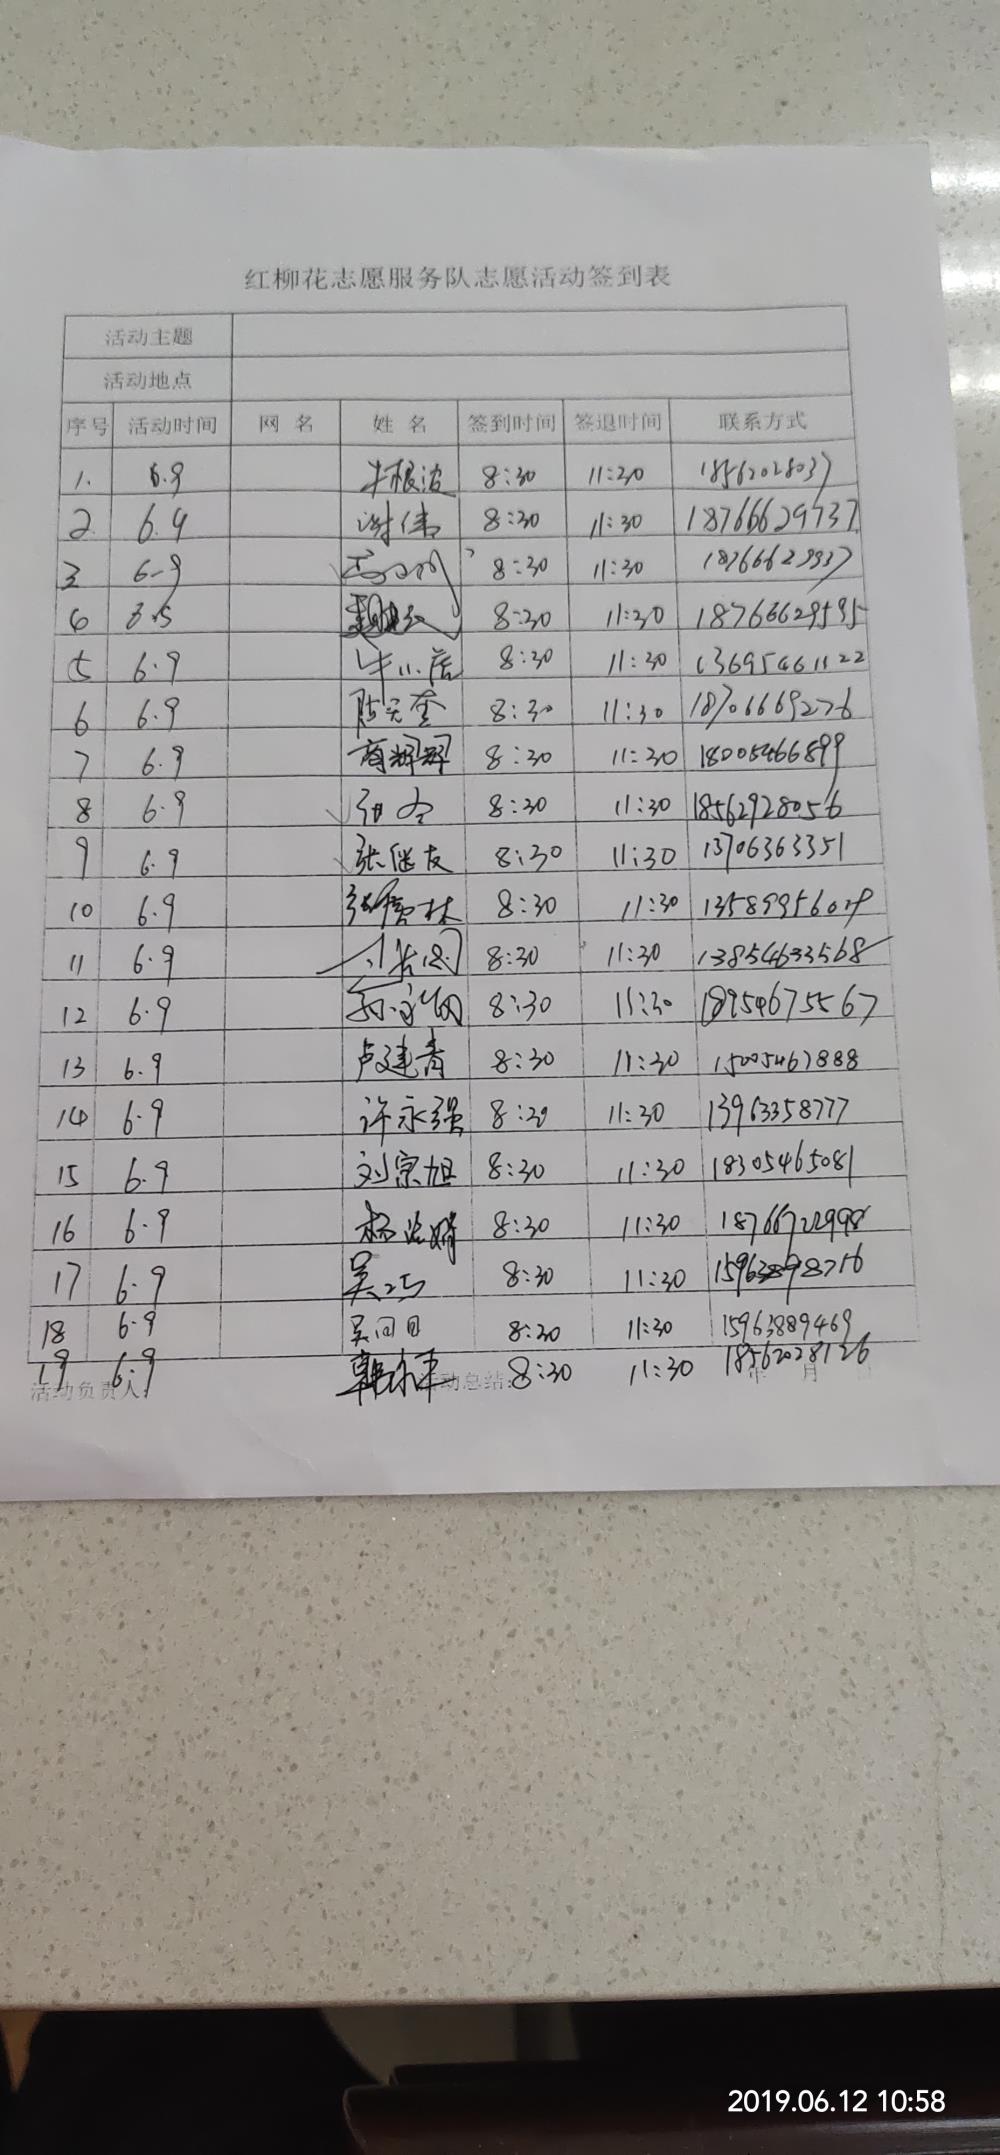 红柳花志愿服务队志愿活动签到表
活动主题
活动地点
序号 活动时间 网名 姓名 签到时间 签退时间 联系方式
1. 6.9 牛根波 8:30 11:30 18562028037
2 6.9 谢伟 8:30 11:30 18766629737
3 6-9 8:30 11:30
6 8:30 11:30 18766629595
5 6.9 8:30 11:30 13695461122
6 6.9 8:30 11:30 18706669276
7 6.9 商辉辉 8:30 11:30 18005466899
8 6.9 8:30 11:30 18562928056
9 6.9 张继友 8:30 11:30 13706363351
10 6.9 8:30 11:30
11 6.9 8:30 11:30 13854633568
12 6.9 8:30 11:30 18954675567
13 6.9 卢建青 8:30 11:30 15005467888
14 6.9 许永强 8:30 11:30 13963358777
15 6.9 刘宗旭 8:30 11:30 18305465081
16 6.9 8:30 11:30 18766722998
17 6.9 8:30 11:30
18 6.9 8:30 11:30 15963889469
19 6.9 8:30 11:30 18562028126
活动负责人: 活动总结: 年 月 日
2019.06.12 10:58